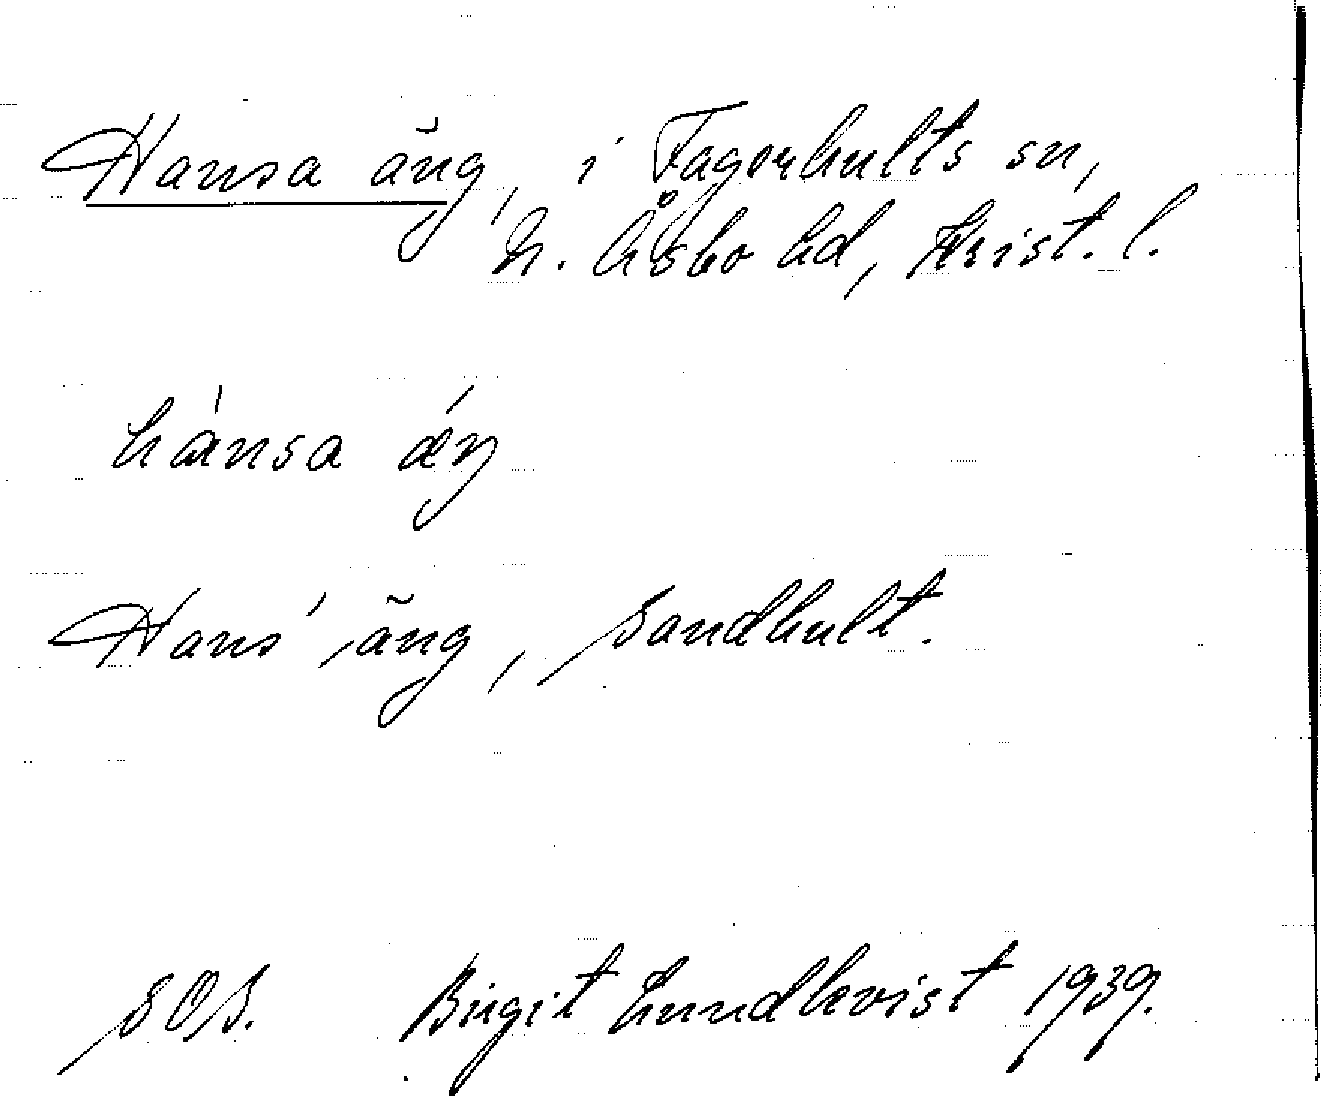 Hansa äng, i Fagerhults sn,
N. Åsbo hd, Krist. l.
hánsa ǽŋ
Hans' äng, Sandhult.
SOS. Birgit Lundkvist 1939.